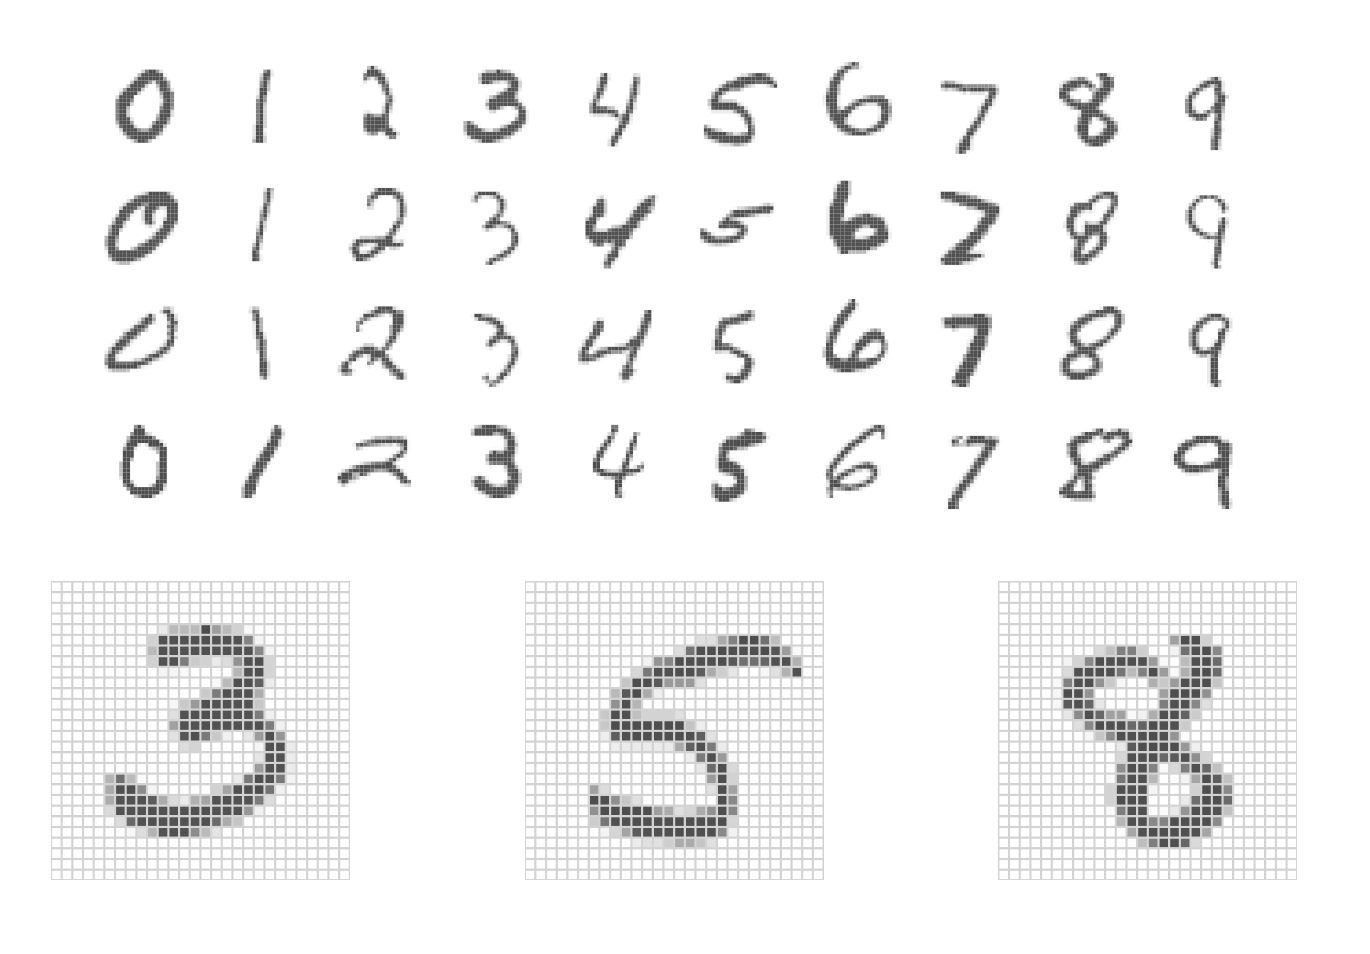 0 1 2 3 4 5 6 7 8 9
0 1 2 3 4 5 6 7 8 9
0 1 2 3 4 5 6 7 8 9
0 1 2 3 4 5 6 7 8 9
3 5 8